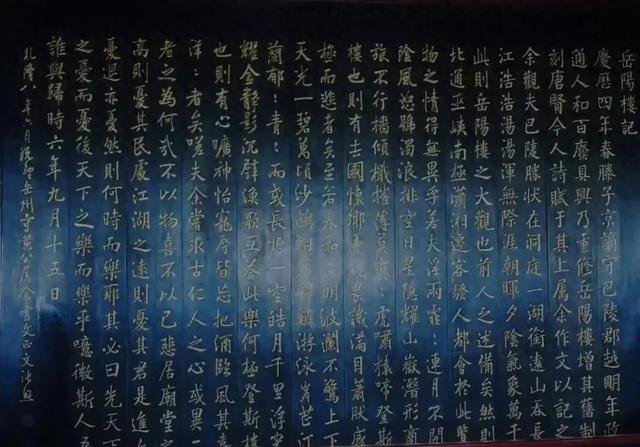 岳陽樓記
慶曆四年春滕子京謫守巴陵郡越明年政
通人和百廢具興乃重修岳陽樓增其舊制
刻唐賢今人詩賦于其上属余作文以記之
余觀夫巴陵勝狀在洞庭一湖銜遠山吞長
江浩浩湯湯渾無際涯朝暉夕陰氣象萬千
此則岳陽樓之大觀也前人之述備矣然則
北通巫峽南極瀟湘遷客騷人都會於此覽
物之情得無異乎若夫淫雨霏〻連月不開
陰風怒號濁浪排空日星隱耀山嶽潛形商
旅不行檣傾檝摧薄暮冥〻虎嘯猿啼登斯
樓也則有去國懷鄉憂讒畏譏滿目蕭然感
極而悲者矣至若春和景明波瀾不驚上下
天光一碧萬頃沙鷗翔集錦鱗游泳岸芷汀
蘭郁〻青〻而或長煙一空皓月千里浮光
耀金靜影沉璧漁歌互答此樂何極登斯樓
也則有心曠神怡寵辱皆忘把酒臨風其喜
洋〻者矣嗟夫余嘗求古仁人之心或異二
者之為何哉不以物喜不以己悲居廟堂之
高則憂其民處江湖之遠則憂其君是進亦
憂退亦憂然則何時而樂耶其必曰先天下
之憂而憂後天下之樂而樂乎噫微斯人吾
誰與歸時六年九月十五日
乾隆八年